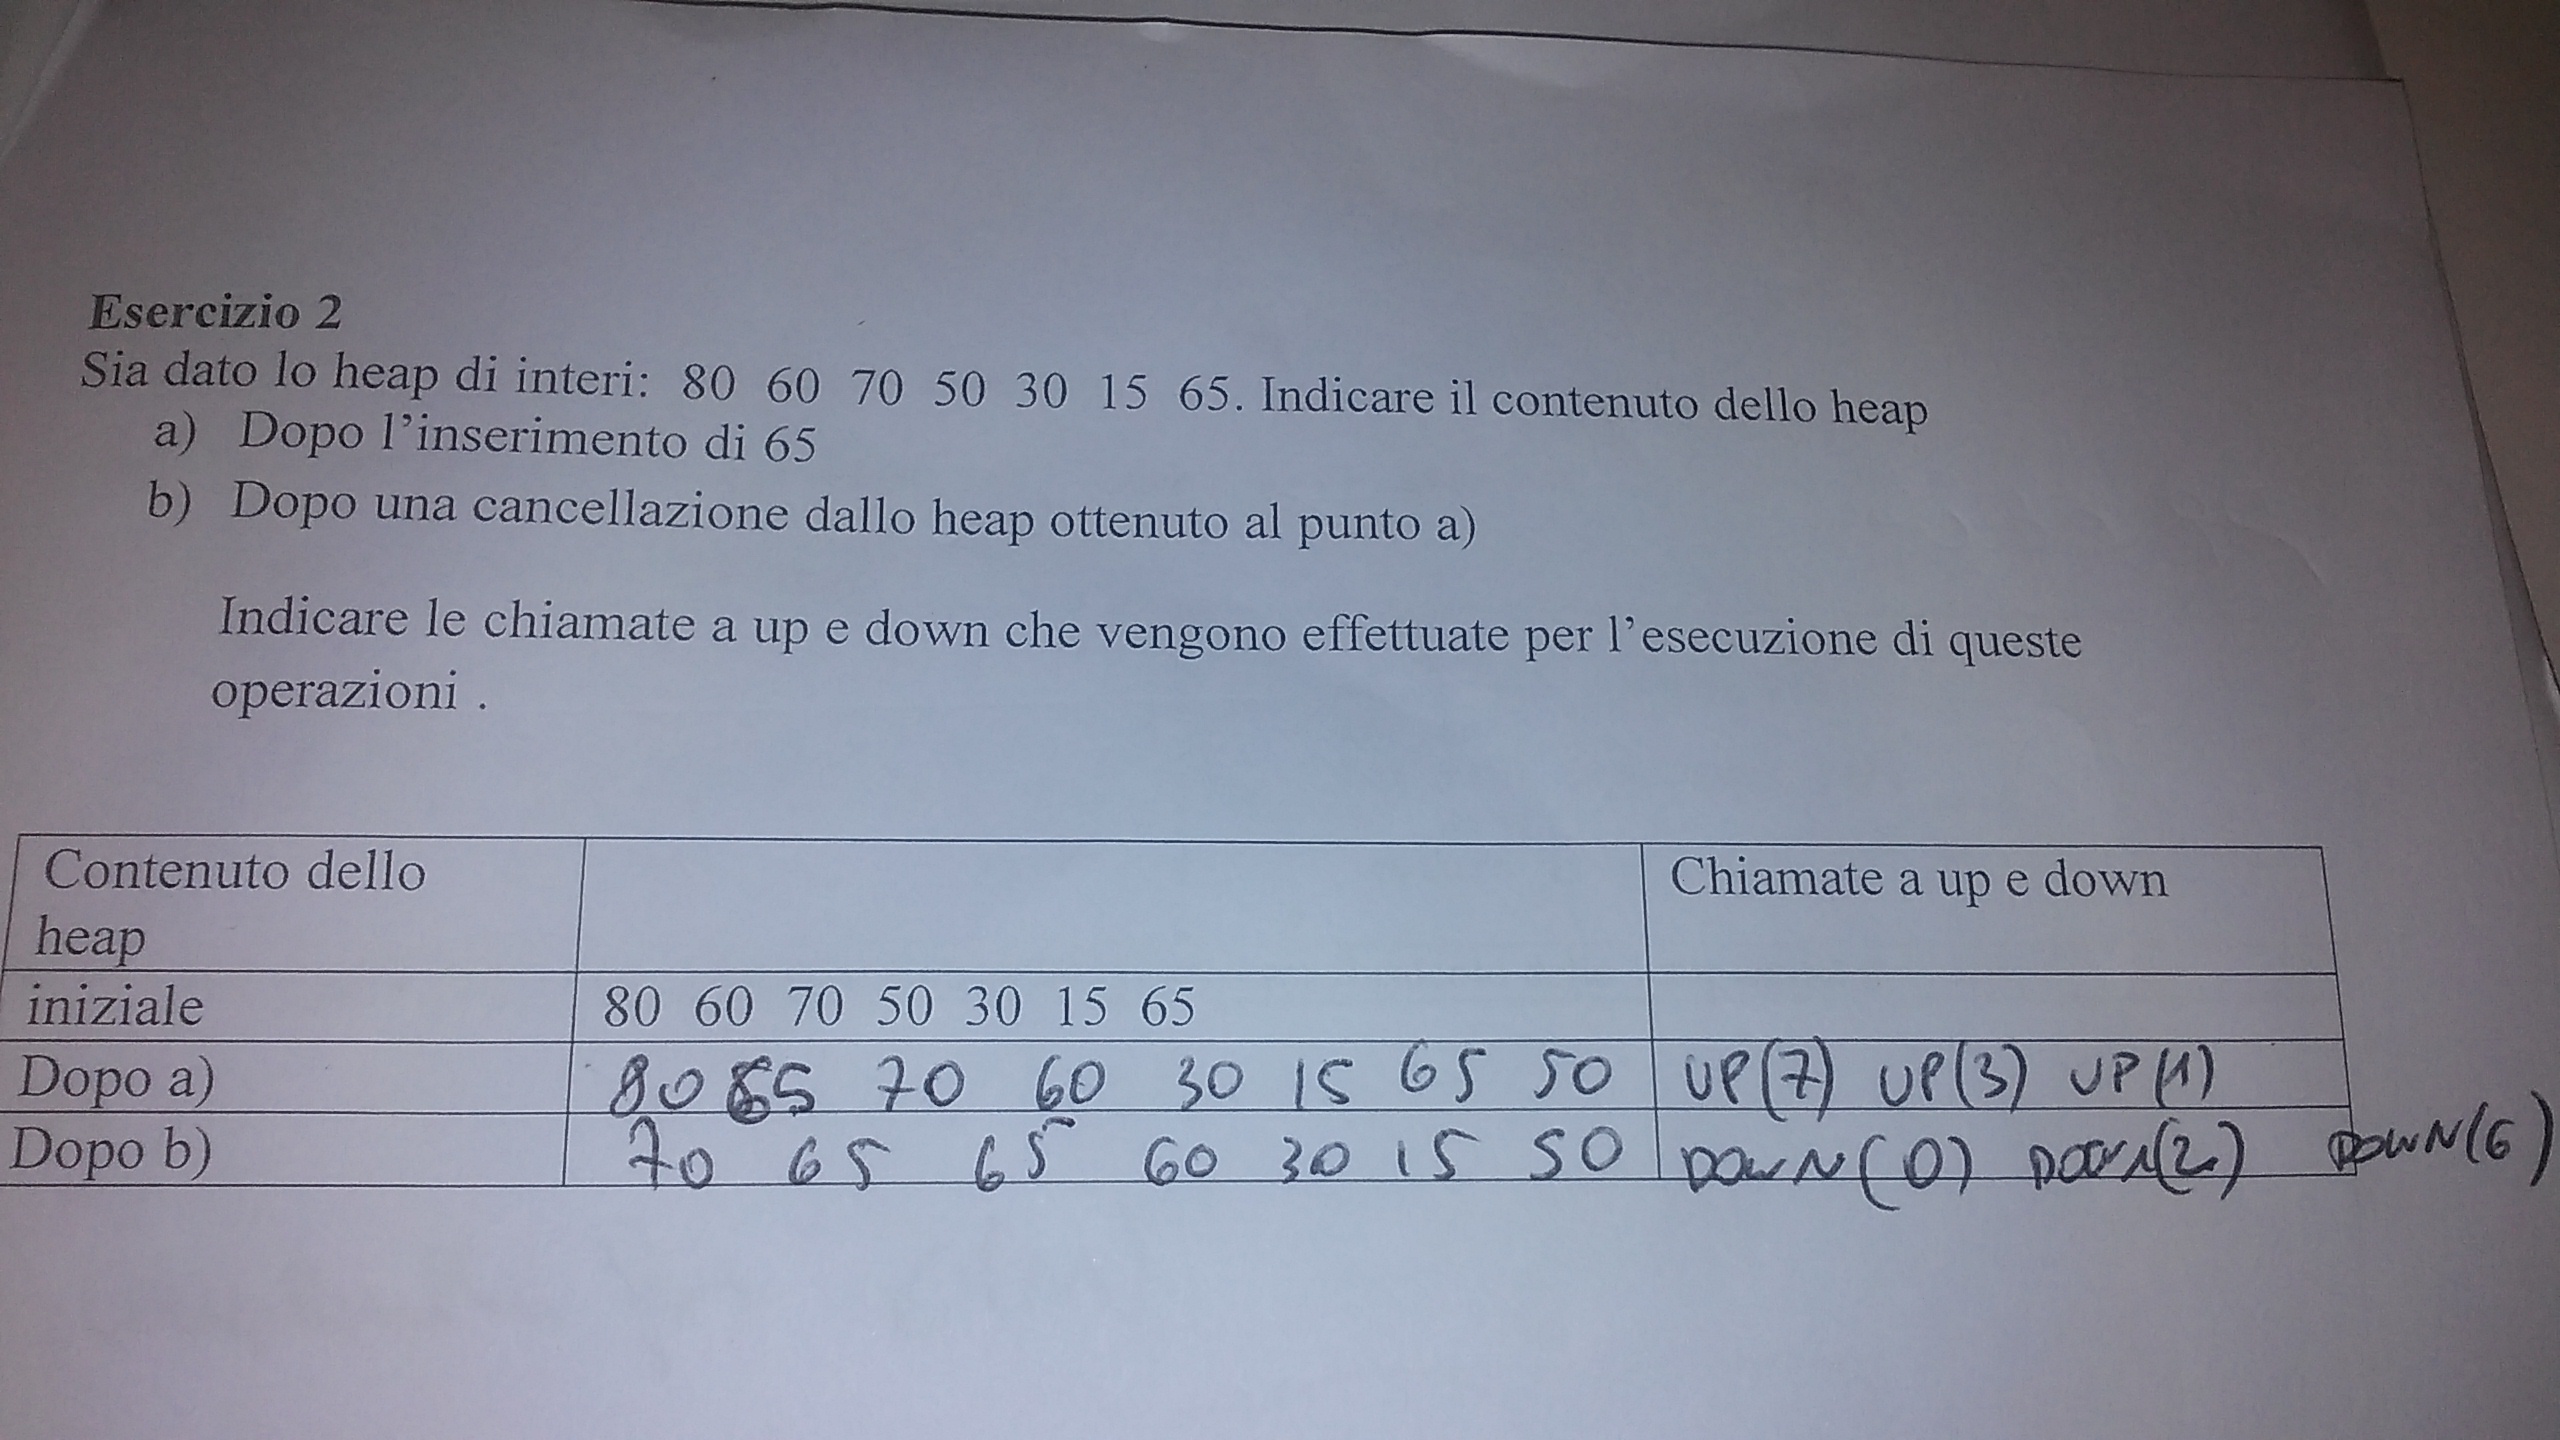 Esercizio 2
Sia dato lo heap di interi: 80 60 70 50 30 15 65. Indicare il contenuto dello heap
a) Dopo l'inserimento di 65
b) Dopo una cancellazione dallo heap ottenuto al punto a)
Indicare le chiamate a up e down che vengono effettuate per l'esecuzione di queste
operazioni .
Contenuto dello heap Chiamate a up e down
iniziale 80 60 70 50 30 15 65
Dopo a) 80 65 70 60 30 15 65 50 UP(7) UP(3) UP(1)
Dopo b) 70 65 65 60 30 15 50 DOWN(0) DOWN(2) DOWN(6)